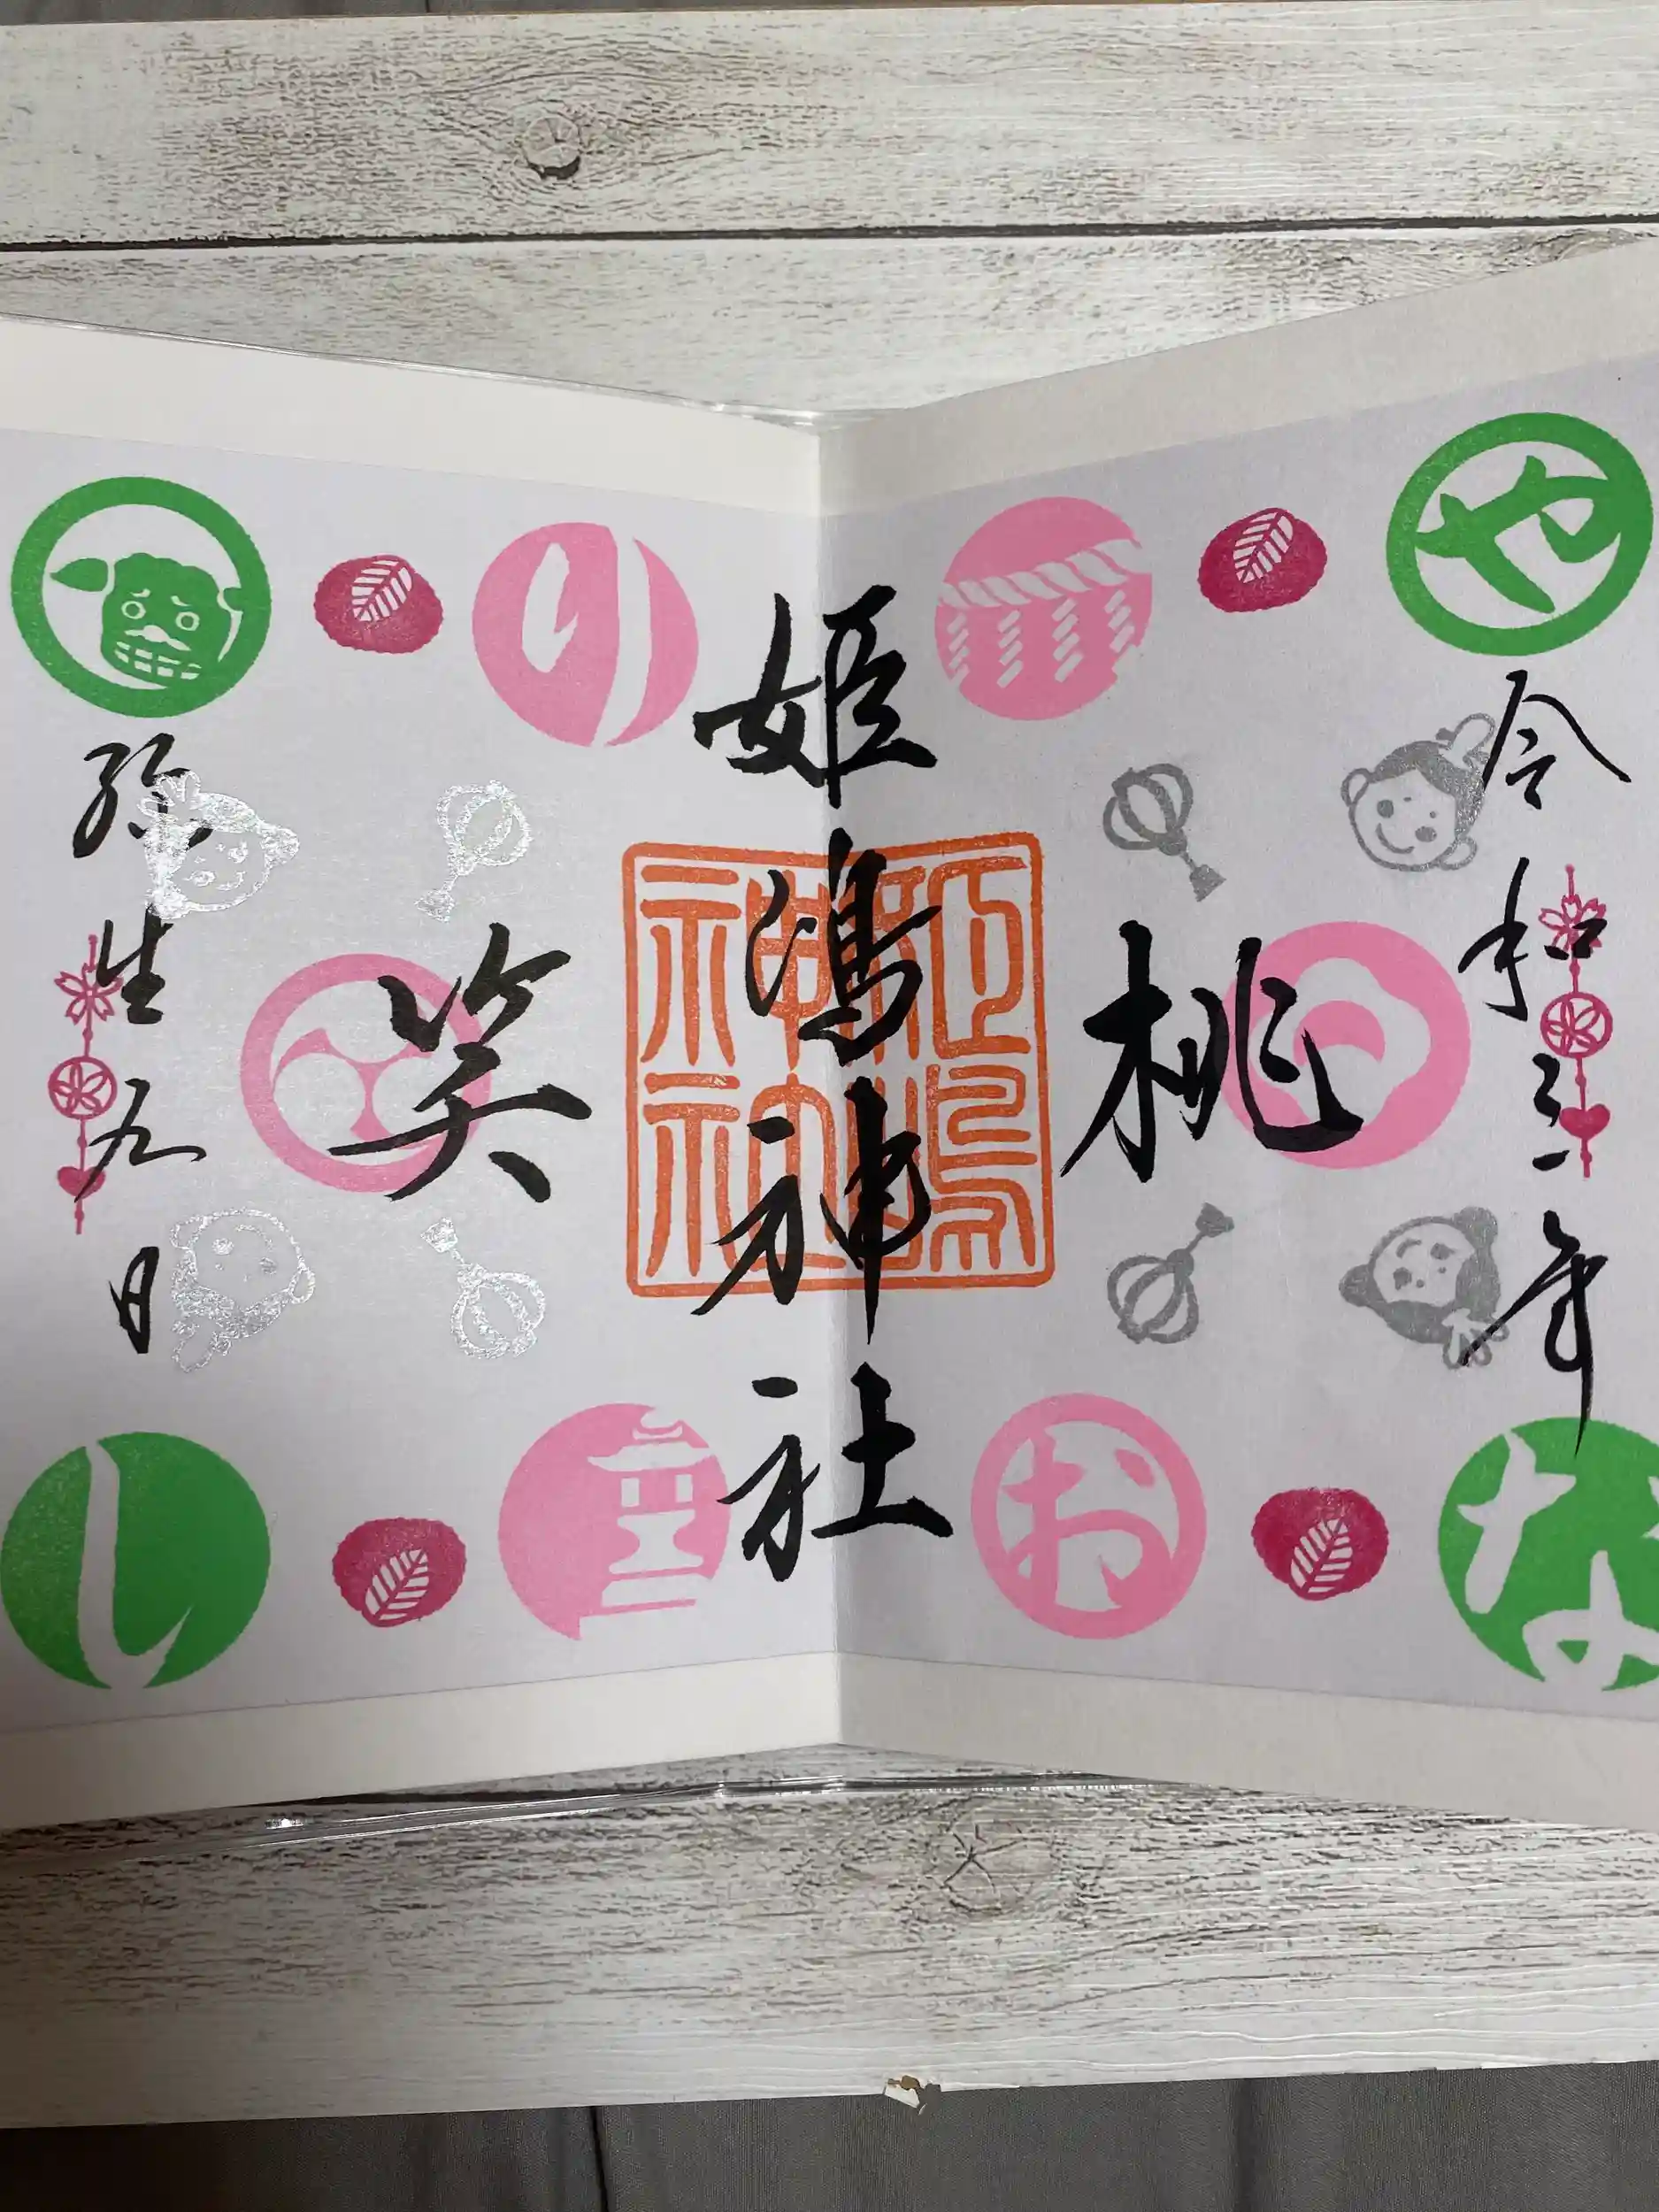 や
り
令和三年
桃
姫嶋神社
姫嶋神社
笑
弥生九日
な
お
し